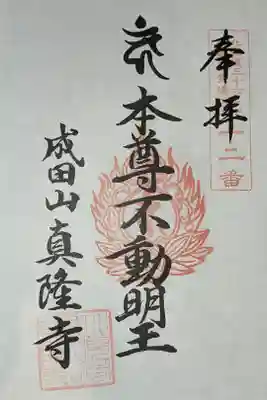 奉拝
二番
本尊不動明王
成田山真隆寺